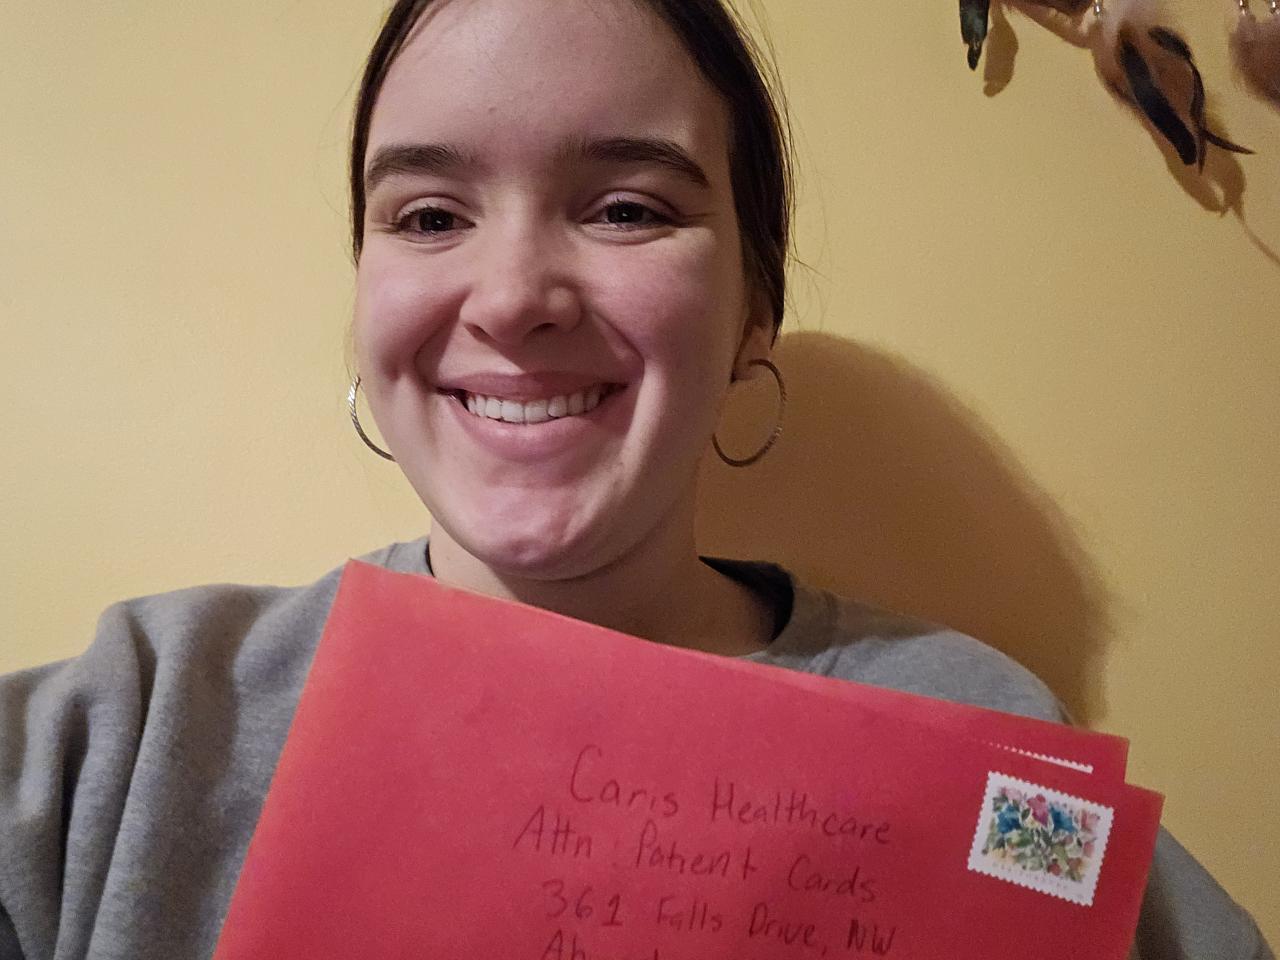 Caris Healthcare
Attn: Patient Cards
361 Falls Drive, NW